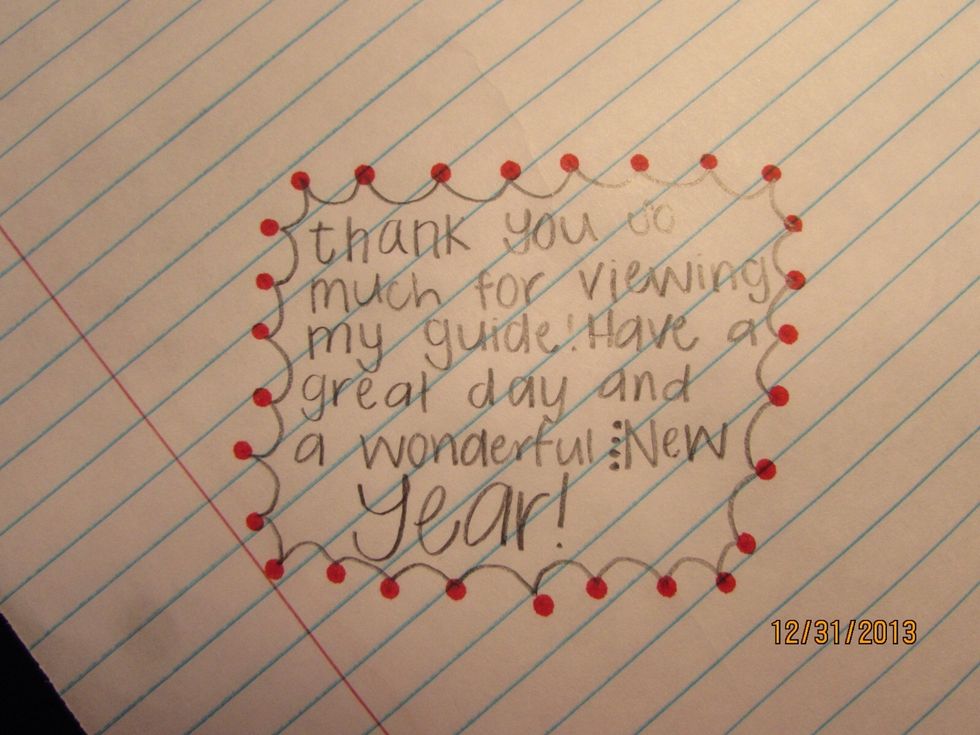 thank you so
much for viewing
my guide! Have a
great day and
a wonderful New
year!
12/31/2013